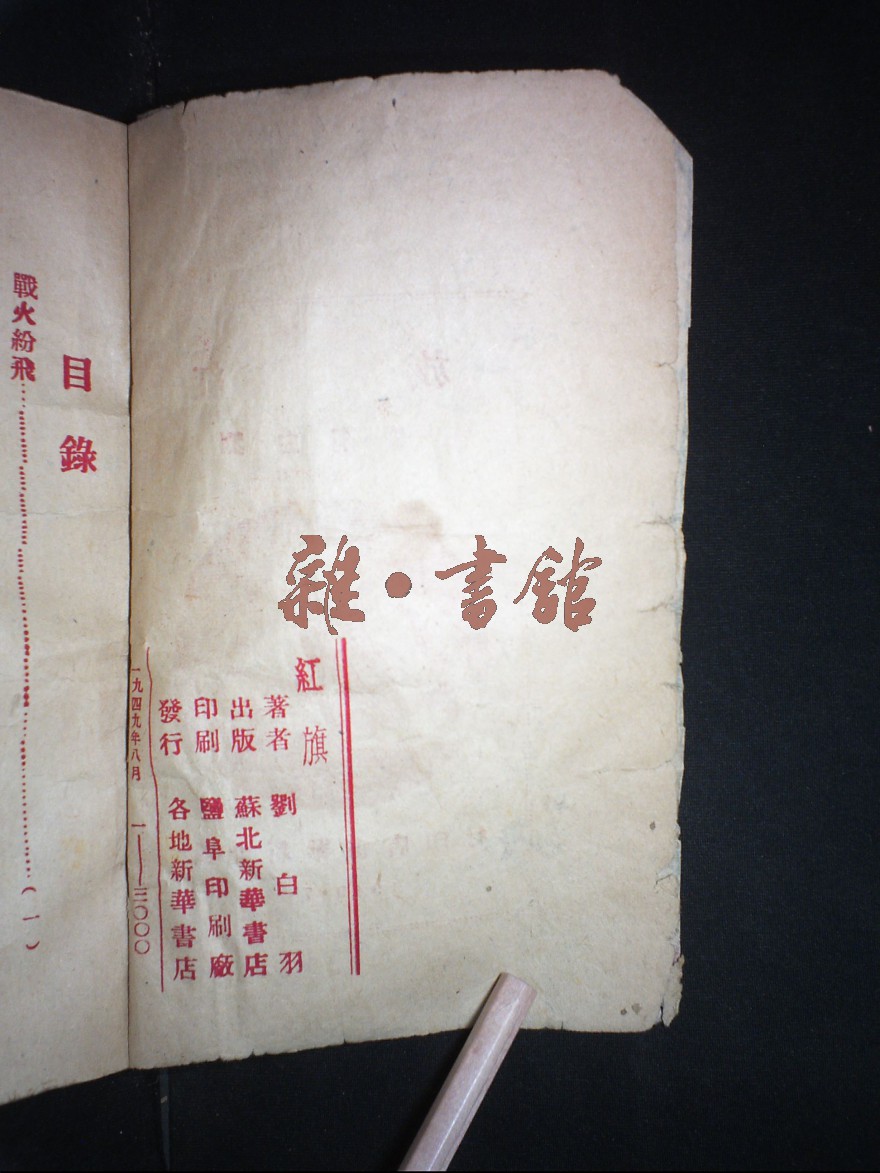 雜·書舘
紅旗
著者 劉白羽
出版 蘇北新華書店
印刷 鹽阜印刷廠
發行 各地新華書店
一九四九年八月 一——三〇〇〇
目錄
戰火紛飛……………………(一)